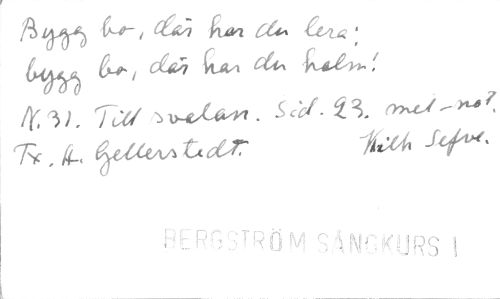 Bygg bo, där har du lera;
bygg bo, där har du halm!
N. 31. Till svalan. Sid. 23. mel-not.
Tx. A. Gellerstedt. Wilh Sefve.
BERGSTRÖM SÅNGKURS I